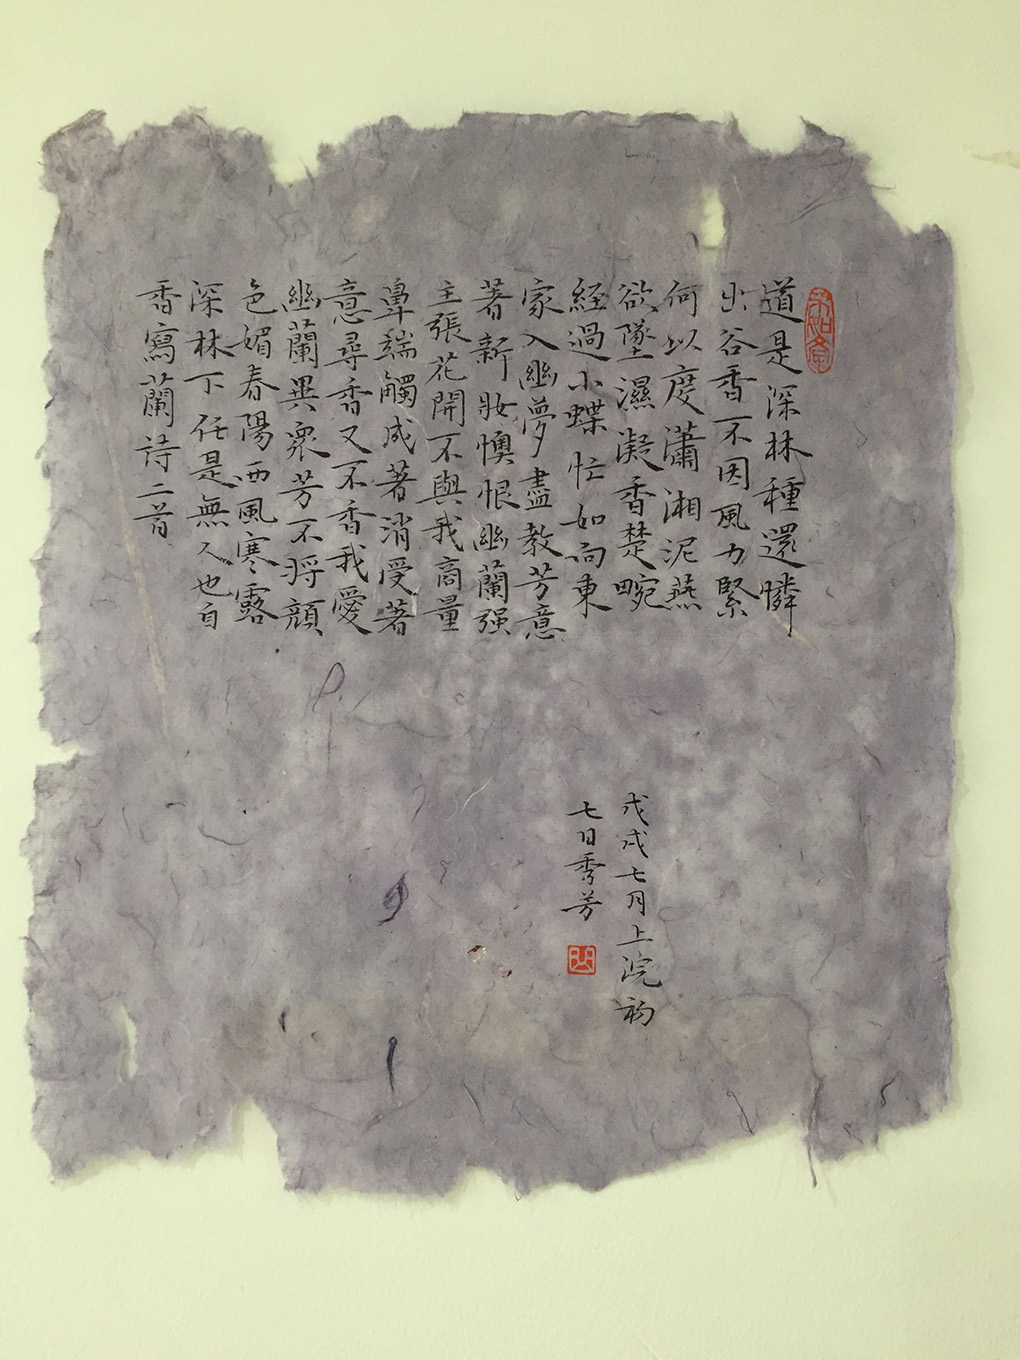 道是深林種還憐
出谷香不因風力緊
何以度瀟湘泥燕
欲墜濕凝香楚畹
経過小蝶忙如向東
家入幽夢盡教芳意
著新妝懊恨幽蘭强
主張花開不與我商量
鼻端觸成著消受著
意尋香又不香我愛
幽蘭異衆芳不将顔
色媚春陽西風寒露
深林下任是無人也自
香寫蘭詩二首
戊戌七月上浣初
七日秀芳